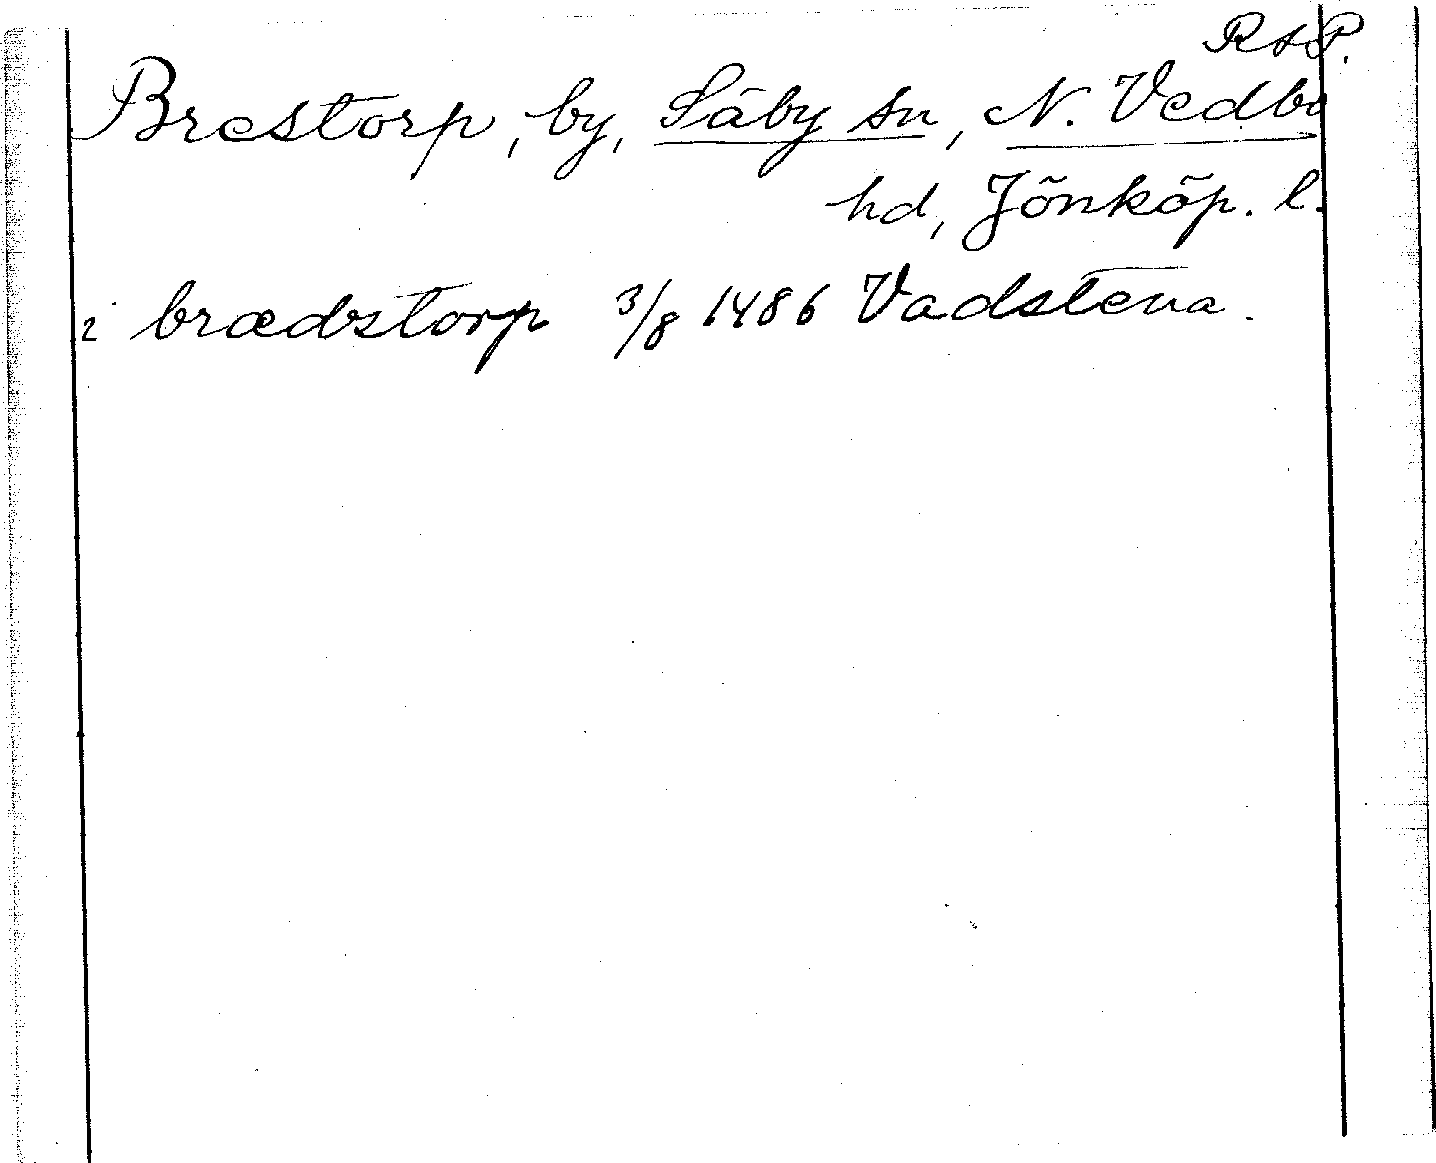 RAP.
Brestorp, by, Säby sn, N. Vedbo
hd, Jönköp. l.
i brædztorp 3/8 1486 Vadstena.